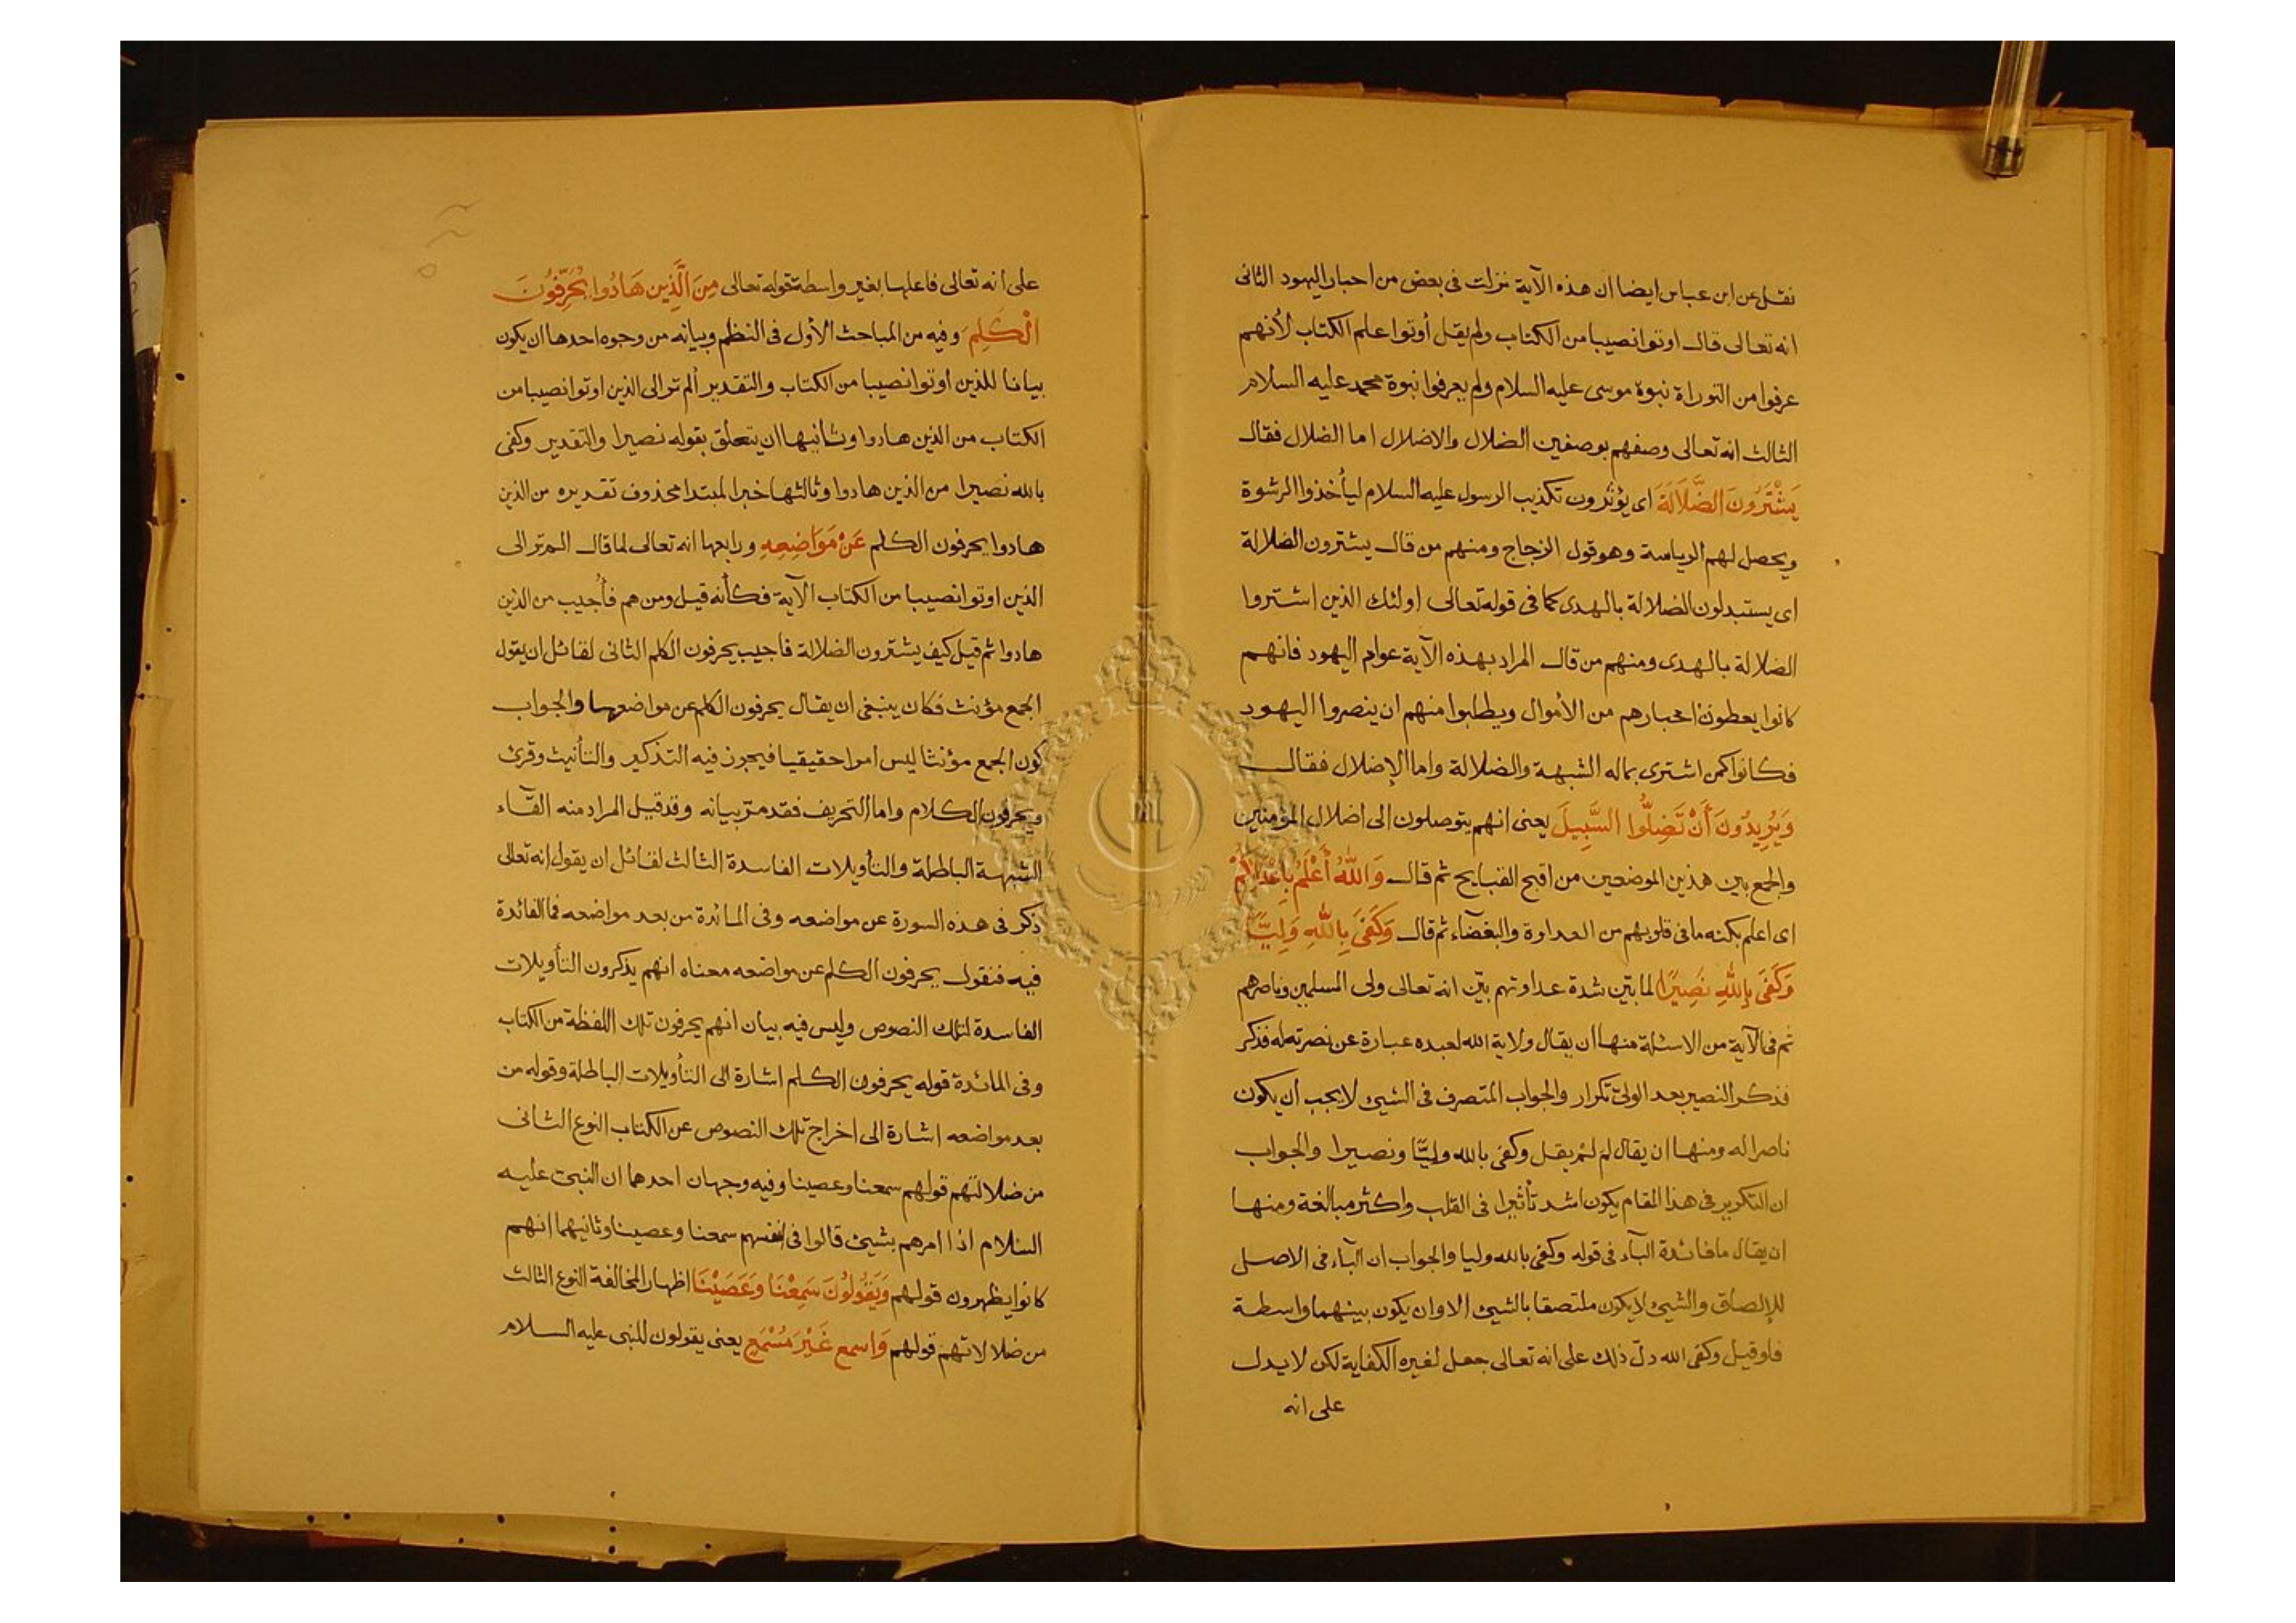 نقل عن ابن عباس ايضا ان هذه الآية نزلت فى بعض من احبار اليهود الثانى
انه تعالى قال اوتوا نصيبا من الكتاب ولم يقل أوتوا علم الكتاب لأنهم
عرفوا من التوراة نبوة موسى عليه السلام ولم يعرفوا نبوة محمد عليه السلام
الثالث انه تعالى وصفهم بوصفين الضلال والاضلال اما الضلال فقال
يَشْتَرُونَ الضَّلَالَةَ اى يؤثرون تكذيب الرسول عليه السلام ليأخذوا الرشوة
ويحصل لهم الرياسة وهو قول الزجاج ومنهم من قال يشترون الضلالة
اى يستبدلون الضلالة بالهدى كما فى قوله تعالى اولئك الذين اشتروا
الضلالة بالهدى ومنهم من قال المراد بهذه الآية عوام اليهود فانهم
كانوا يعطون احبارهم من الأموال ويطلبوا منهم ان ينصروا اليهود
فكانوا كمن اشترى بماله الشبهة والضلالة واما الإضلال فقال
وَيُرِيدُونَ أَنْ تَضِلُّوا السَّبِيلَ يعنى انهم يتوصلون الى اضلال المؤمنين
والجمع بين هذين الموضعين من اقبح القبايح ثم قال وَاللّٰهُ أَعْلَمُ بِأَعْدَائِكُمْ
اى اعلم بكنه ما فى قلوبهم من العداوة والبغضآء ثم قال وَكَفَى بِاللّٰهِ وَلِيًّا
وَكَفَى بِاللّٰهِ نَصِيرًا لما بيّن شدة عداوتهم بيّن انه تعالى ولى المسلمين وناصرهم
ثم فى الآية من الاسئلة منها ان يقال ولاية الله لعبده عبارة عن نصرته له فذكر
فذكر النصير بعد الولىّ تكرار والجواب المتصرف فى الشيئ لا يجب ان يكون
ناصرا له ومنها ان يقال لم لم يقل وكفى بالله وليّا ونصيرا والجواب
ان التكرير فى هذا المقام يكون اشد تأثيرا فى القلب واكثر مبالغة ومنها
ان يقال ما فائدة البآء فى قوله وكفى بالله وليا والجواب ان البآء فى الاصل
للإلصاق والشيئ لا يكون ملتصقا بالشيئ الا وان يكون بينهما واسطة
فلو قيل وكفى الله دلّ ذلك على انه تعالى جعل لغيره الكفاية لكن لا يدل
على انه
على انه تعالى فاعلها بغير واسطة قوله تعالى مِنَ الَّذِينَ هَادُوا يُحَرِّفُونَ
الْكَلِمَ وفيه من المباحث الأول فى النظم وبيانه من وجوه احدها ان يكون
بيانا للذين اوتوا نصيبا من الكتاب والتقدير ألم تر الى الذين اوتوا نصيبا من
الكتاب من الذين هادوا وثانيها ان يتعلق بقوله نصيرا والتقدير وكفى
بالله نصيرا من الذين هادوا وثالثها خبرا لمبتدا محذوف تقديره من الذين
هادوا يحرفون الكلم عَنْ مَوَاضِعِهِ ورابعها انه تعالى لما قال الم تر الى
الذين اوتوا نصيبا من الكتاب الآية فكأنه قيل ومن هم فأُجيب من الذين
هادوا ثم قيل كيف يشترون الضلالة فاجيب يحرفون الكلم الثانى لقائل ان يقول
الجمع مؤنث فكان ينبغى ان يقال يحرفون الكلم عن مواضعها والجواب
كون الجمع مؤنثا ليس امرا حقيقيا فيجوز فيه التذكير والتأنيث وقرئ
ويحرفون الكلام واما التحريف فقد مرّ بيانه وقد قيل المراد منه القآء
الشبهة الباطلة والتأويلات الفاسدة الثالث لقائل ان يقول انه تعالى
ذكر فى هذه السورة عن مواضعه وفى المائدة من بعد مواضعه فما الفائدة
فيه فنقول يحرفون الكلم عن مواضعه معناه انهم يذكرون التأويلات
الفاسدة لتلك النصوص وليس فيه بيان انهم يحرفون تلك اللفظة من الكتاب
وفى المائدة قوله يحرفون الكلم اشارة الى التأويلات الباطلة وقوله من
بعد مواضعه اشارة الى اخراج تلك النصوص عن الكتاب النوع الثانى
من ضلالتهم قولهم سمعنا وعصينا وفيه وجهان احدهما ان النبى عليه
السلام اذا امرهم بشيئ قالوا فى انفسهم سمعنا وعصينا وثانيهما انهم
كانوا يظهرون قولهم وَيَقُولُونَ سَمِعْنَا وَعَصَيْنَا اظهار المخالفة النوع الثالث
من ضلالاتهم قولهم وَاسمع غَيْرَ مُسْمَعٍ يعنى يقولون للنبى عليه السلام